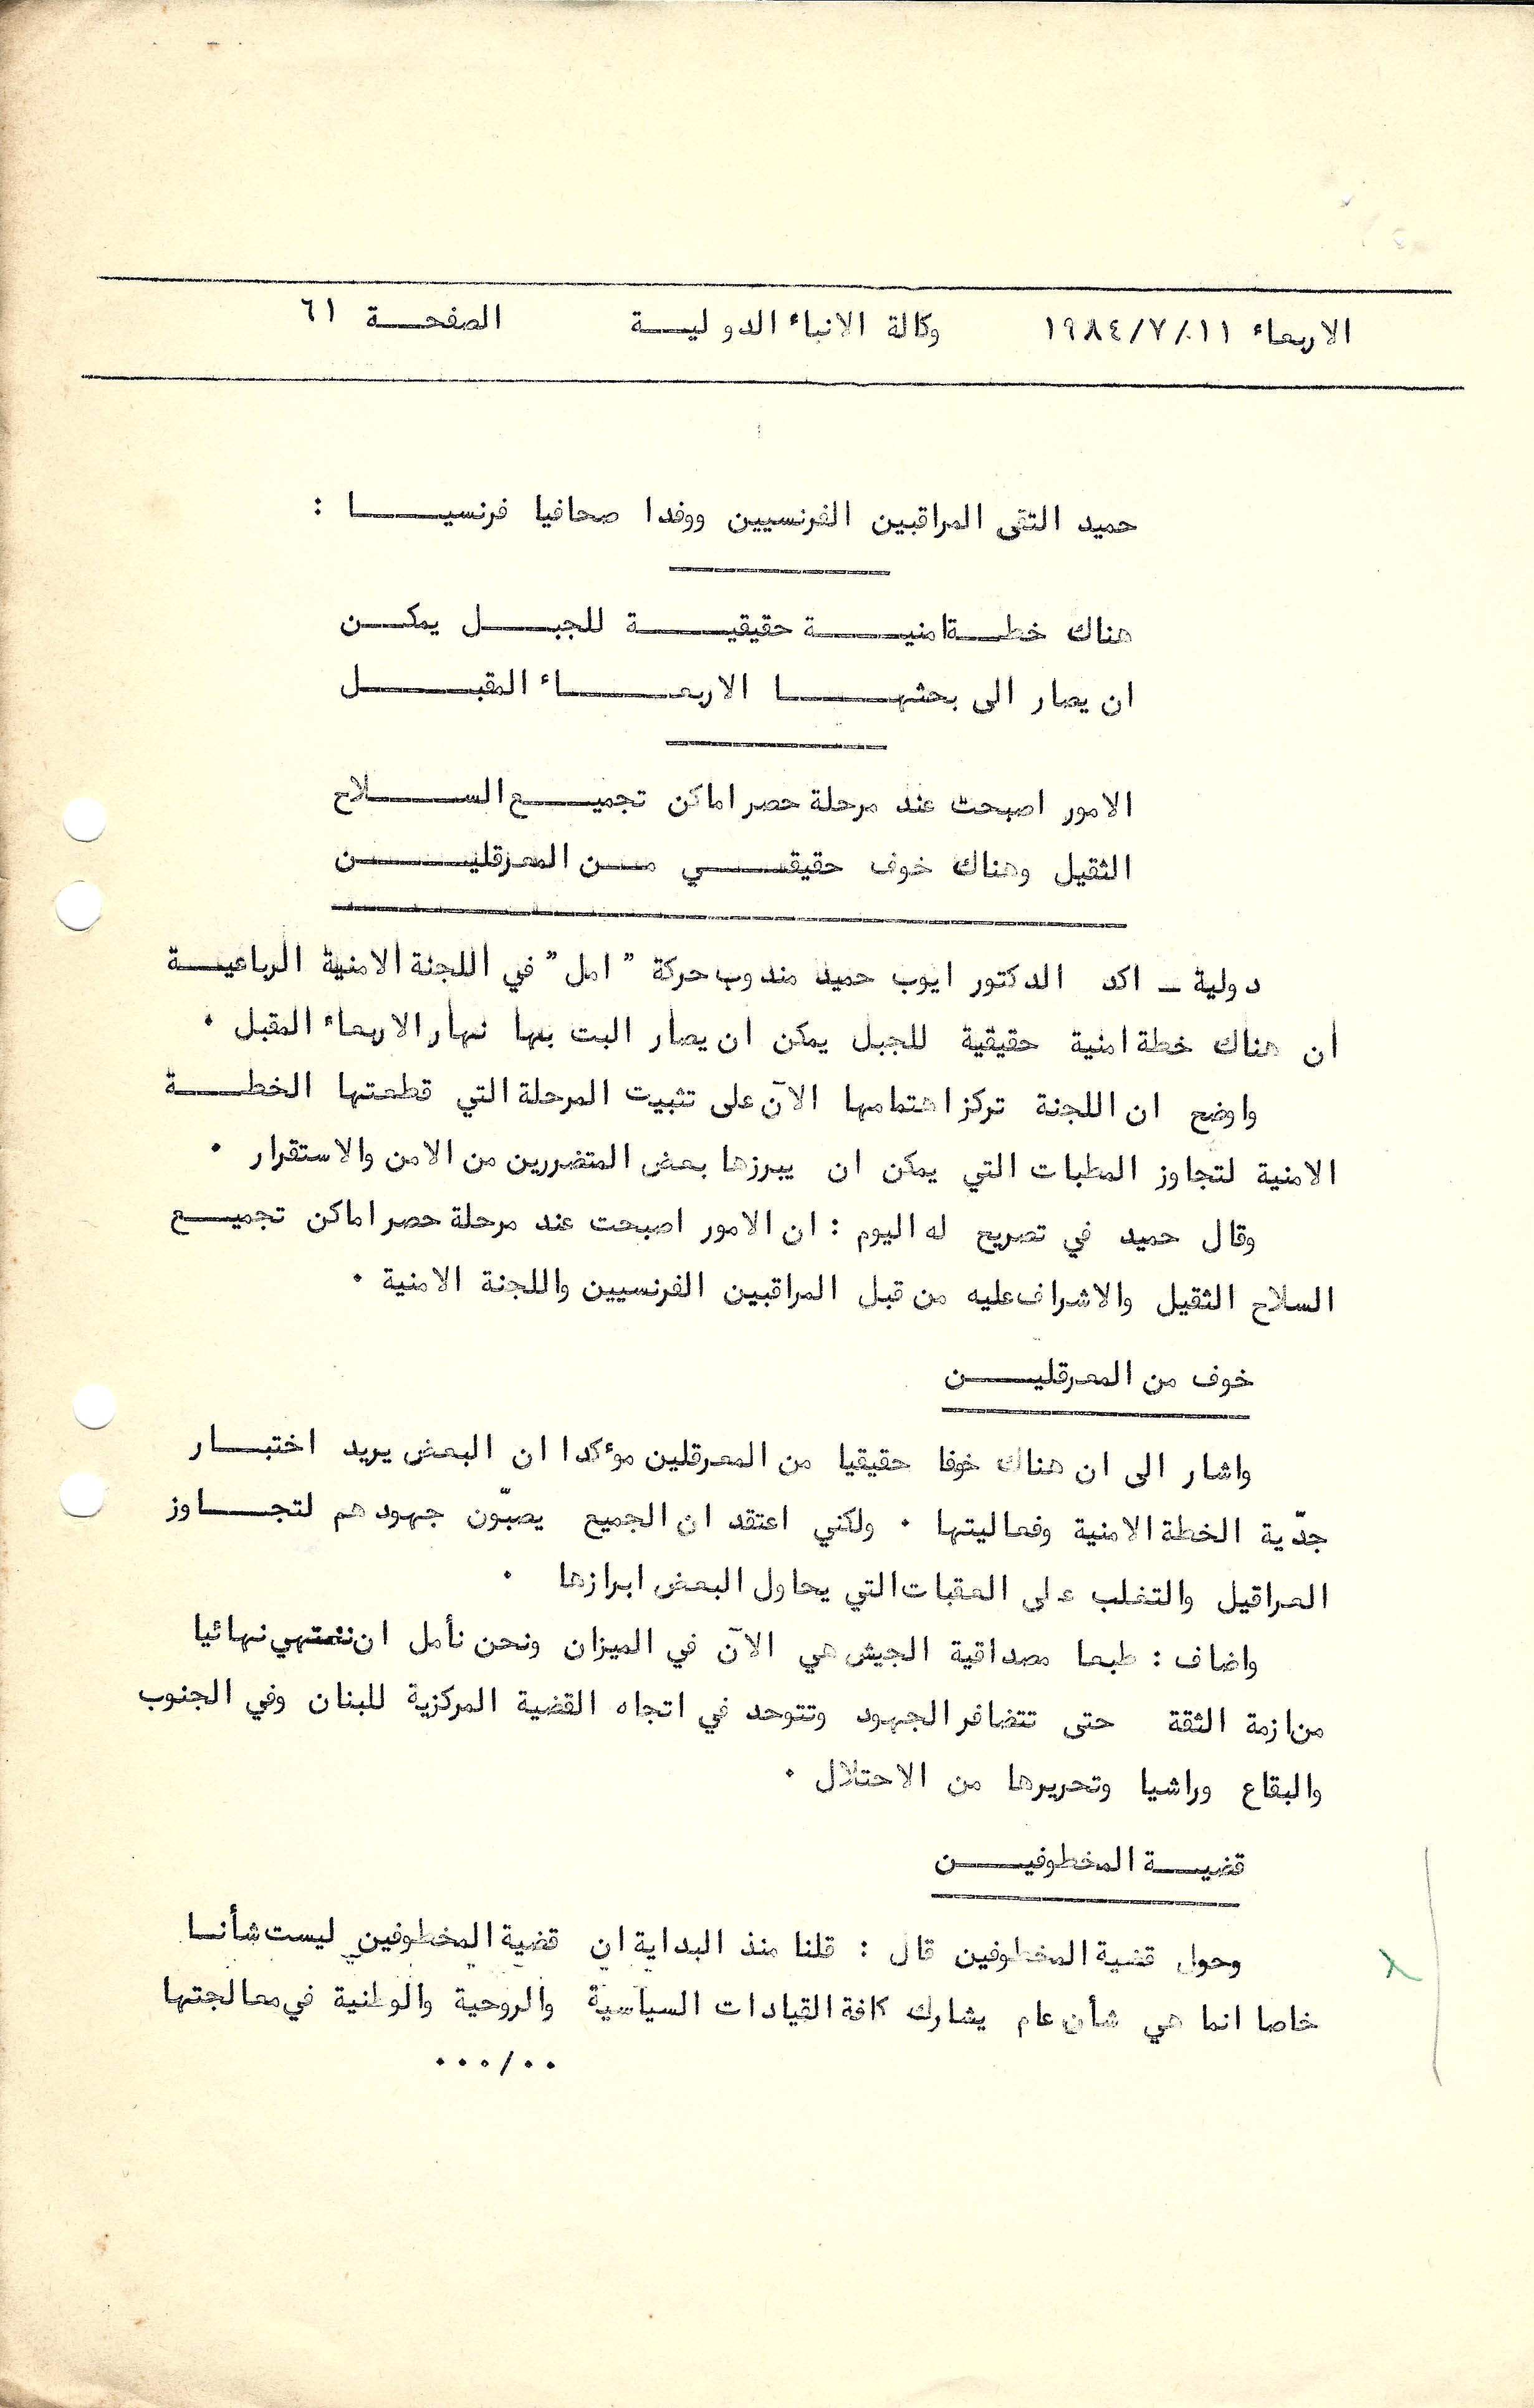 الاربعاء ١٩٨٤/٧/١١ وكالة الانباء الدولية الصفحة ٦١
حميد التقى المراقبين الفرنسيين ووفدا صحافيا فرنسيا :
هناك خطة امنية حقيقية للجبل يمكن
ان يصار الى بحثها الاربعاء المقبل
الامور اصبحت عند مرحلة حصر اماكن تجميع السلاح
الثقيل وهناك خوف حقيقي من المعرقلين
دولية - اكد الدكتور ايوب حميد مندوب حركة "امل" في اللجنة الامنية الرباعية
ان هناك خطة امنية حقيقية للجبل يمكن ان يصار البت بها نهار الاربعاء المقبل .
واوضح ان اللجنة تركز اهتمامها الآن على تثبيت المرحلة التي قطعتها الخطة
الامنية لتجاوز المطبات التي يمكن ان يبرزها بعض المتضررين من الامن والاستقرار .
وقال حميد في تصريح له اليوم : ان الامور اصبحت عند مرحلة حصر اماكن تجميع
السلاح الثقيل والاشراف عليه من قبل المراقبين الفرنسيين واللجنة الامنية .
خوف من المعرقلين
واشار الى ان هناك خوفا حقيقيا من المعرقلين موءكدا ان البعض يريد اختبار
جدّية الخطة الامنية وفعاليتها . ولكني اعتقد ان الجميع يصبّون جهودهم لتجاوز
العراقيل والتغلب على العقبات التي يحاول البعض ابرازها .
واضاف : طبعا مصداقية الجيش هي الآن في الميزان ونحن نأمل ان ننتهي نهائيا
من ازمة الثقة حتى تتضافر الجهود وتتوحد في اتجاه القضية المركزية للبنان وفي الجنوب
والبقاع وراشيا وتحريرها من الاحتلال .
قضية المخطوفين
وحول قضية المخطوفين قال : قلنا منذ البداية ان قضية المخطوفين ليست شأنا
خاصا انما هي شأن عام يشارك كافة القيادات السياسية والروحية والوطنية في معالجتها
../...